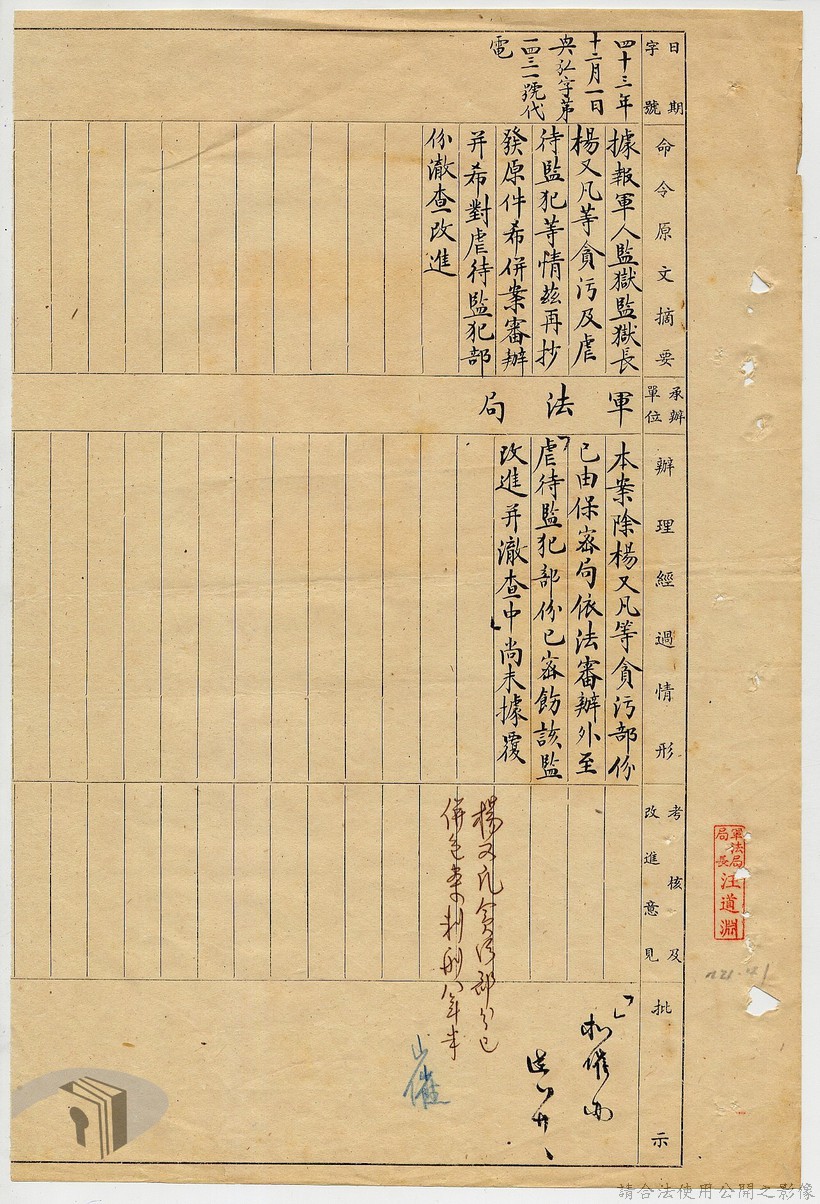 日期
字號
四十三年
十二月一日
典弘字第
一四三一號代
電
命令原文摘要
據報軍人監獄監獄長
楊又凡等貪污及虐
待監犯等情茲再抄
發原件希併案審辦
并希對虐待監犯部
份澈查改進
承辦
單位
軍法局
辦理經過情形
本案除楊又凡等貪污部份
已由保密局依法審辦外至
「虐待監犯部份已密飭該監
改進并澈查中」尚未據覆
考核及
改進意見
楊又凡貪污部分已
併包案判刑八年半
批示
軍法局
局長
汪道淵
請合法使用公開之影像